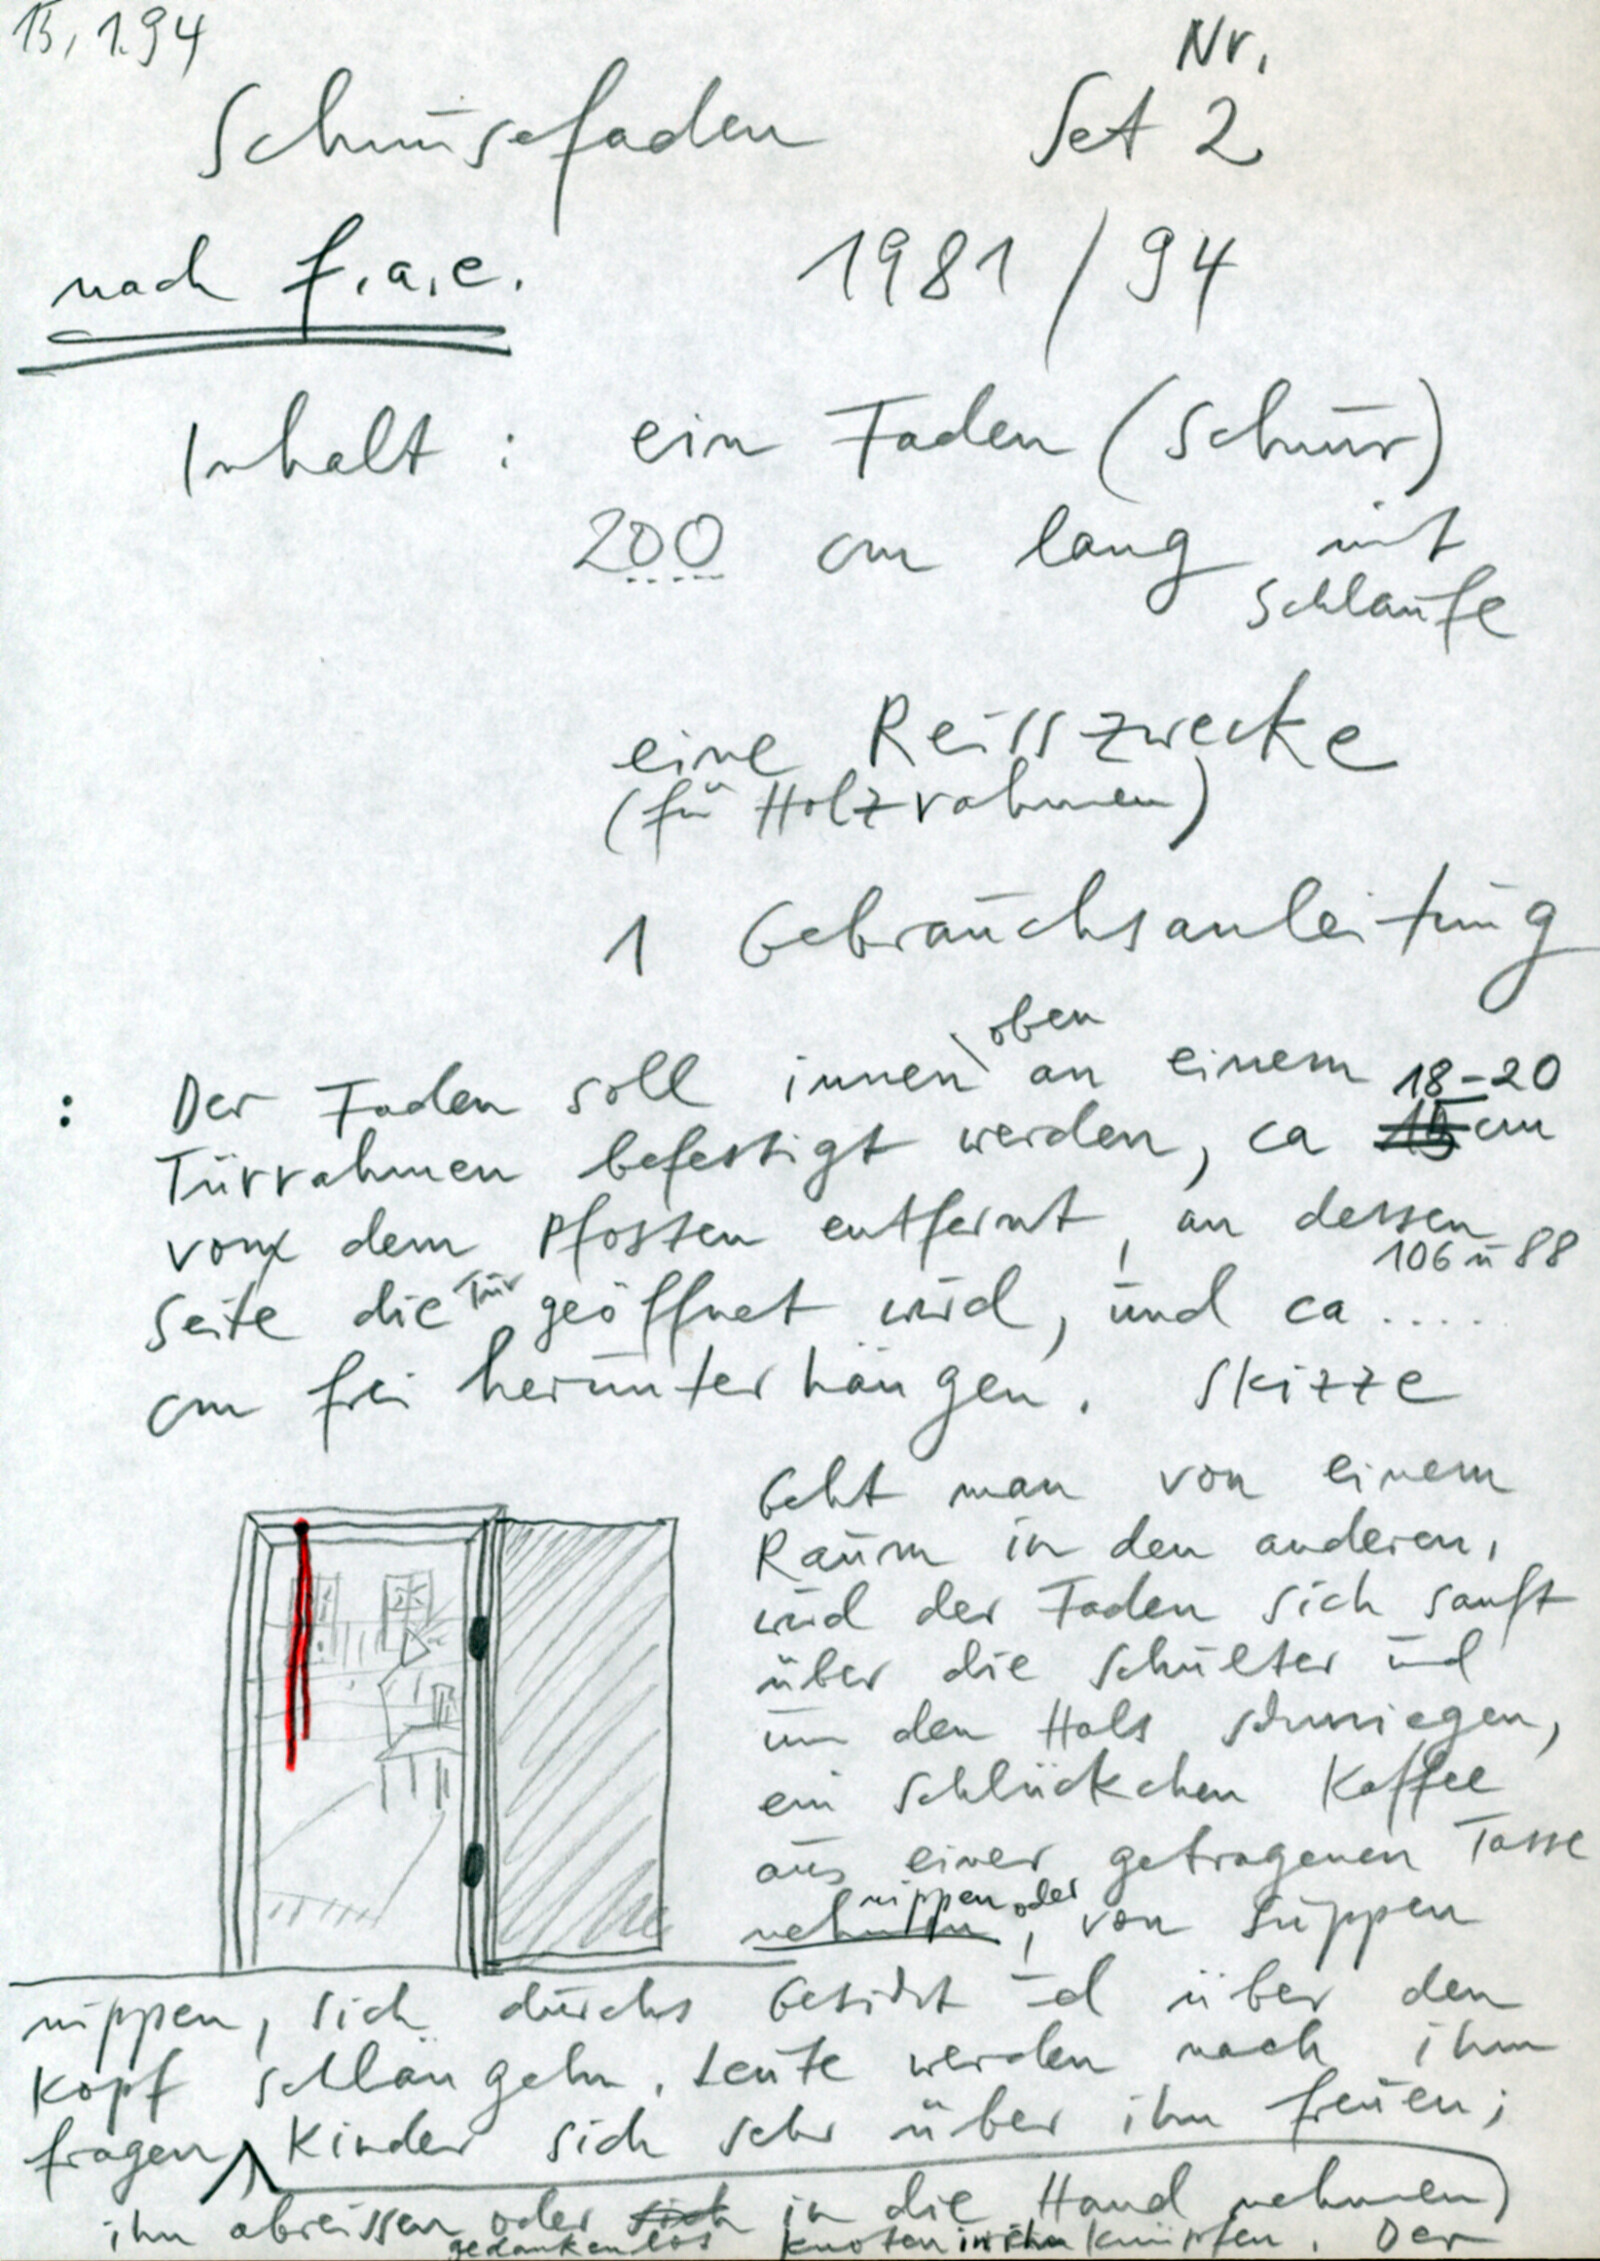 15.1.94
Nr.
Schmusefaden Set 2
nach f.a.e. 1981/94
Inhalt: ein Faden (Schnur)
200 cm lang mit
Schlaufe
eine Reisszwecke
(für Holzrahmen)
1 Gebrauchsanleitung
oben
: Der Faden soll innen an einem 18-20
Türrahmen befestigt werden, ca 15 cm
von dem Pfosten entfernt, an dessen
106 u 88
Seite die Tür geöffnet wird, und ca .....
cm frei herunterhängen. Skizze
Geht man von einem
Raum in den anderen,
wird der Faden sich sanft
über die Schulter und
um den Hals schmiegen,
ein Schlückchen Kaffee
aus einer getragenen Tasse
nippen oder
nehmen, von Suppen
nippen, sich durchs Gesicht ud über den
Kopf schlängeln. Leute werden nach ihm
fragen Kinder sich sehr über ihn freuen;
ihn abreissen oder sich in die Hand nehmen)
gedankenlos Knoten in ihn knüpfen. Der